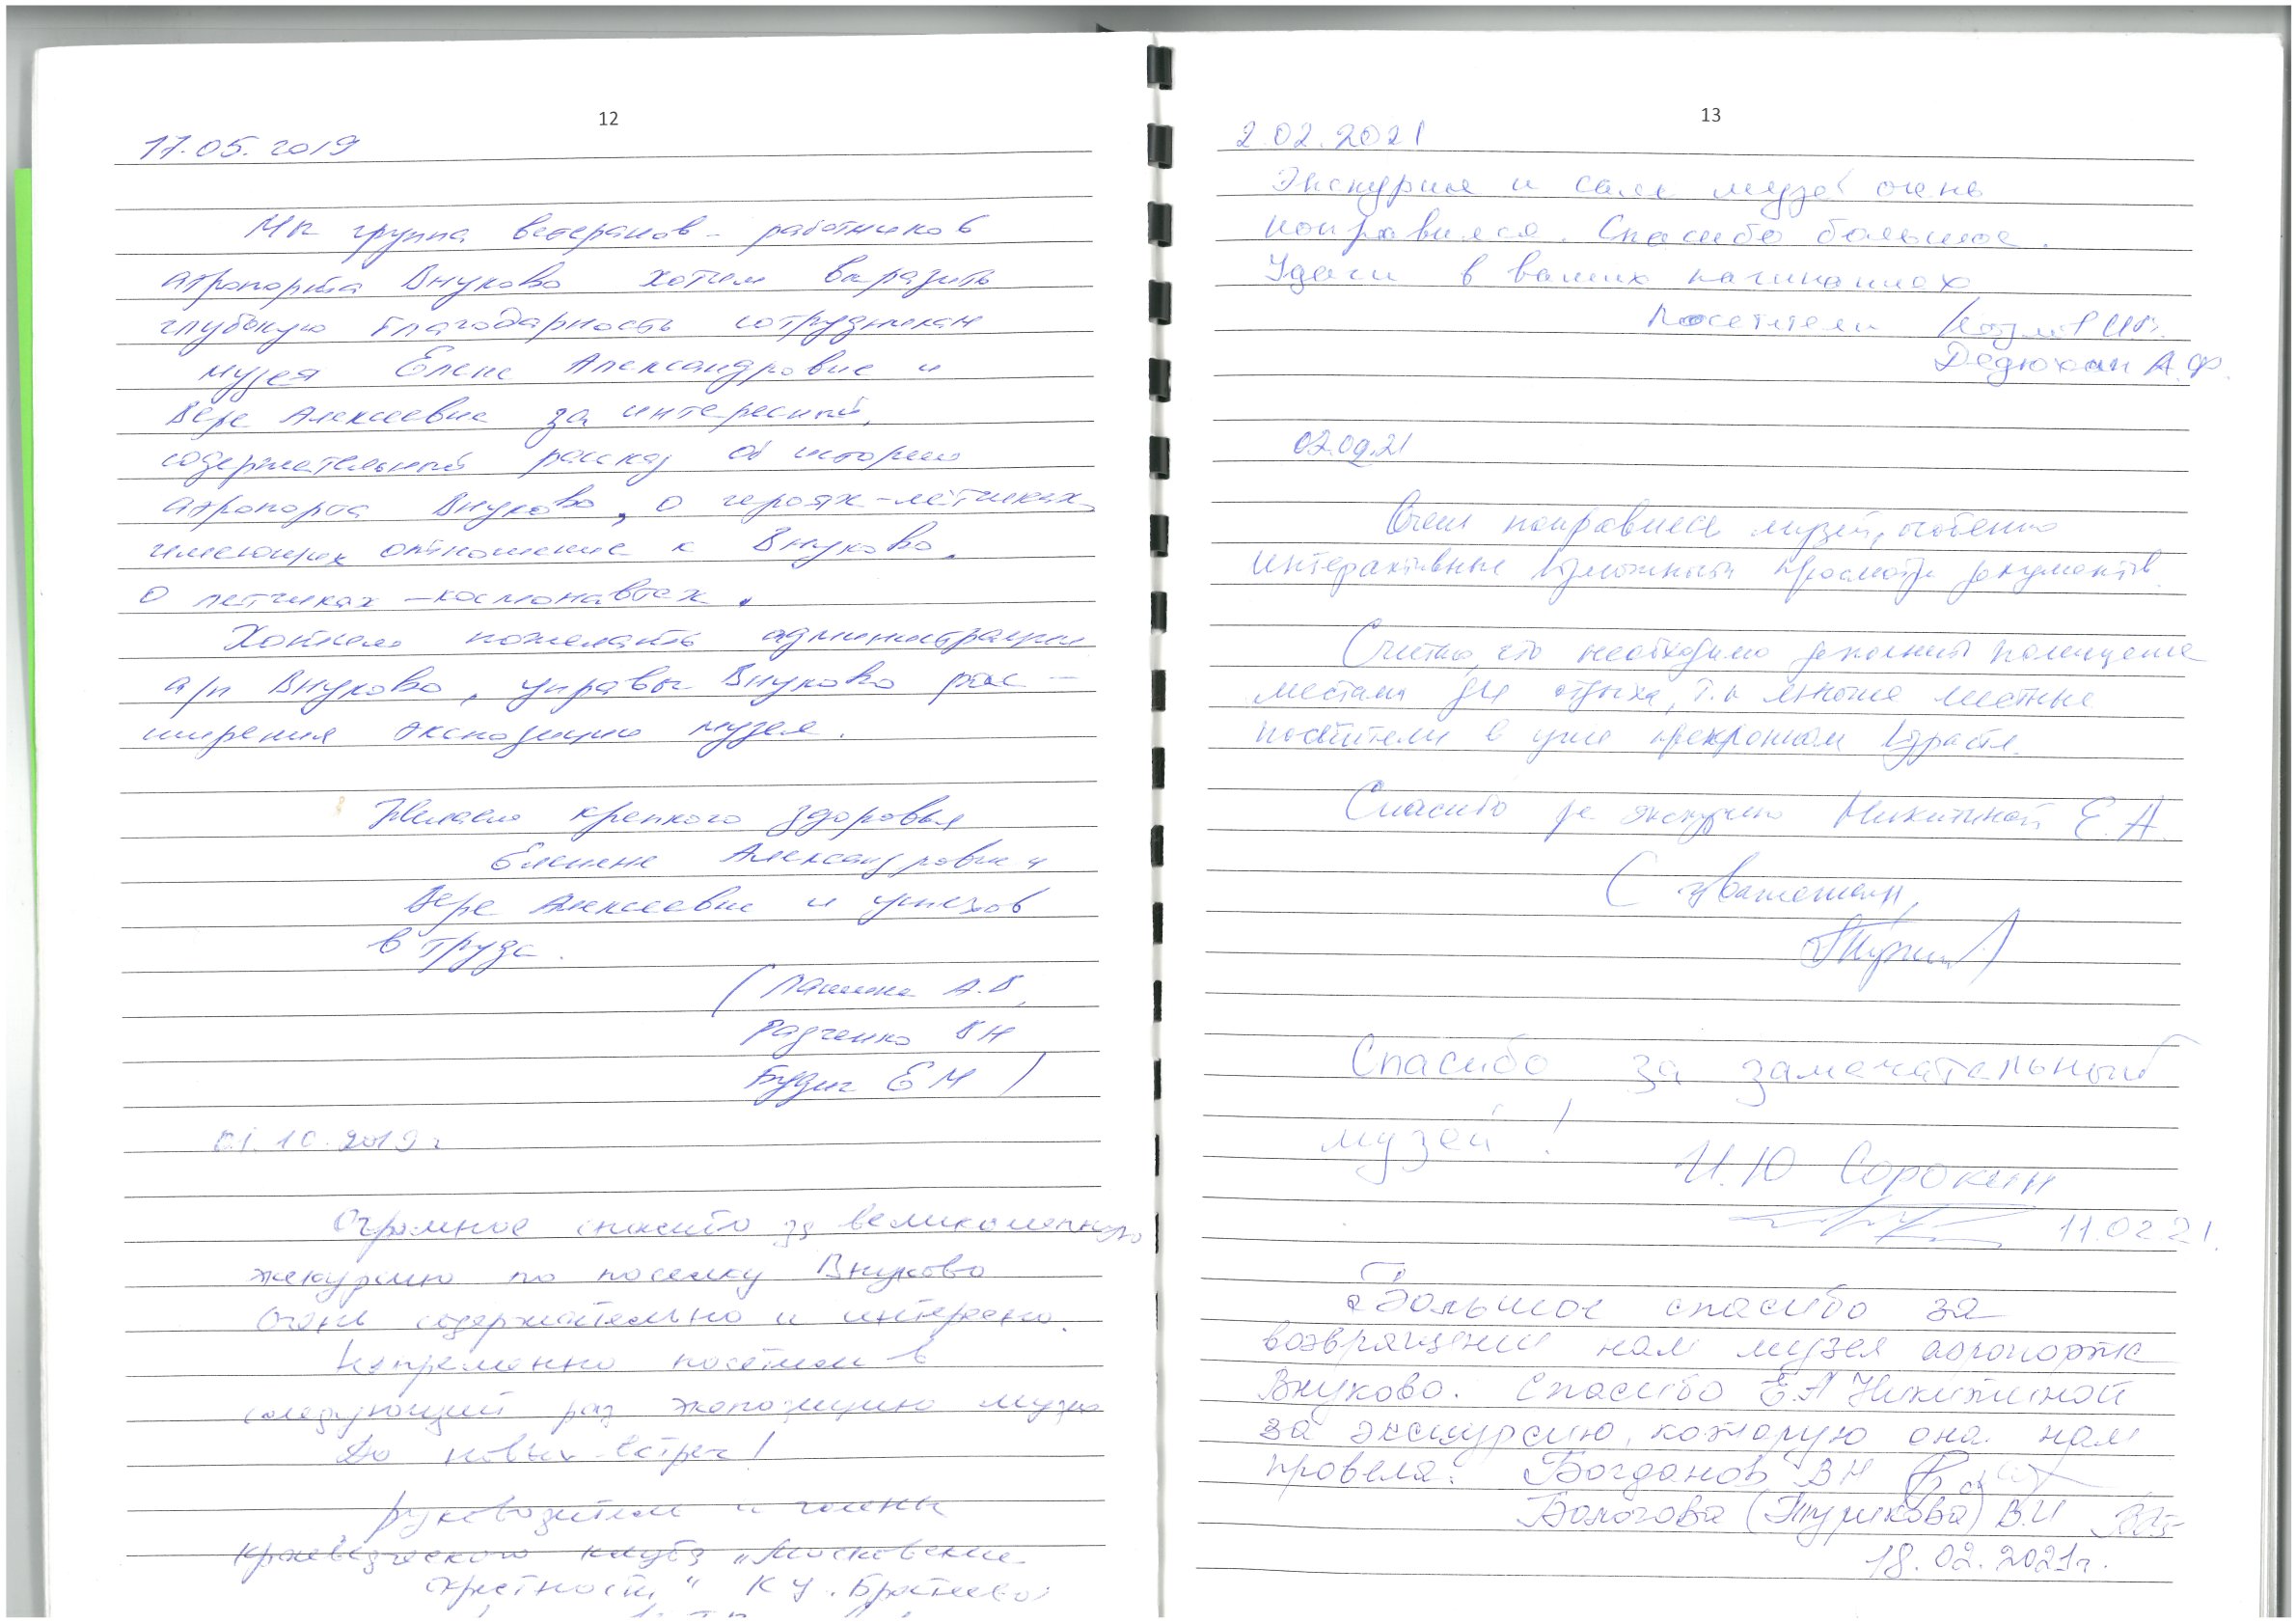 12
17.05.2019
Мы группа ветеранов - работников
аэропорта Внуково хотим выразить
глубокую благодарность сотрудникам
музея Елене Александровне и
Вере Алексеевне за интересный,
содержательный рассказ об истории
аэропорта Внуково, о героях-лётчиках,
имеющих отношение к Внуково.
О летчиках-космонавтах.
Хотим пожелать администрации
а/п Внуково, управы Внуково рас-
ширения экспозиции музея.
Желаем крепкого здоровья
Елене Александровне и
Вере Алексеевне и успехов
в труде.
( А.В.
Радченко В Н
Е М )
01.10.2019 г
Огромное спасибо за великолепную
экскурсию по поселку Внуково
Очень содержательно и интересно.
Непременно посетим в
следующий раз экспозицию музея
До новых встреч!
руководители и члены
краеведческого клуба "Московские
окрестности" К У. Братеево
13
2.02.2021
Экскурсия и сам музей очень
понравился. Спасибо большое.
Удачи в ваших начинаниях
Посетители Козлов И.В.
Дедюхин А.Ф.
02.02.21
Очень понравился музей, особенно
интерактивные возможности просмотра документов.
Считаю, что необходимо дополнить помещение
местами для отдыха, т.к многие местные
посетители в уже преклонном возрасте.
Спасибо за экскурсию Никитиной Е.А.
С уважением,
Спасибо за замечательный
музей!
И.Ю Сорокин
11.02.21.
Большое спасибо за
возвращение нам музея аэропорта
Внуково. Спасибо Е.А Никитиной
за экскурсию, которую она нам
провела. Богданов ВН
Бологова (Турикова) В.И
18.02.2021г.